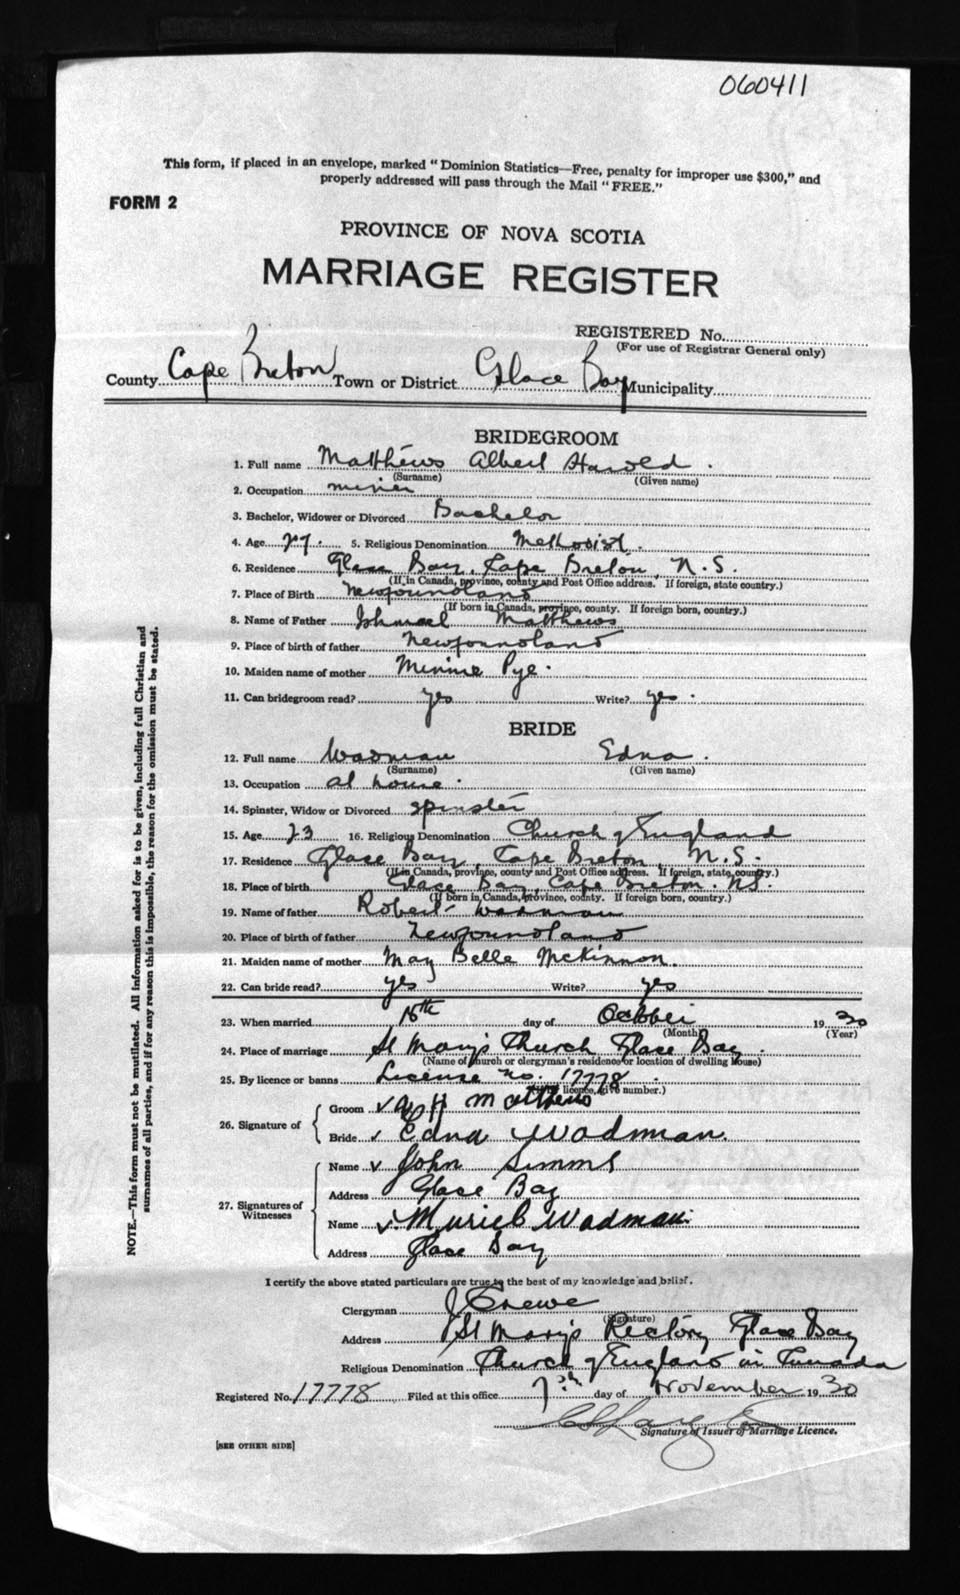 060411
This form, if placed in an envelope, marked "Dominion Statistics—Free, penalty for improper use $300," and
properly addressed will pass through the Mail "FREE."
FORM 2
PROVINCE OF NOVA SCOTIA
MARRIAGE REGISTER
REGISTERED No.
(For use of Registrar General only)
County Cape Breton Town or District Glace Bay Municipality
BRIDEGROOM
1. Full name Matthews Albert Harold.
(Surname) (Given name)
2. Occupation miner
3. Bachelor, Widower or Divorced Bachelor
4. Age 27. 5. Religious Denomination Methodist.
6. Residence Glace Bay, Cape Breton, N.S.
(If in Canada, province, county and Post Office address. If foreign, state country.)
7. Place of Birth Newfoundland
(If born in Canada, province, county. If foreign born, country.)
8. Name of Father Ishmael Matthews
9. Place of birth of father Newfoundland
10. Maiden name of mother Minnie Pye.
11. Can bridegroom read? yes Write? yes.
BRIDE
12. Full name Wadman Edna.
(Surname) (Given name)
13. Occupation at home.
14. Spinster, Widow or Divorced spinster
15. Age 23 16. Religious Denomination Church of England
17. Residence Glace Bay, Cape Breton, N.S.
(If in Canada, province, county and Post Office address. If foreign, state country.)
18. Place of birth Glace Bay, Cape Breton. NS.
(If born in Canada, province, county. If foreign born, country.)
19. Name of father Robert Wadman
20. Place of birth of father Newfoundland
21. Maiden name of mother May Belle McKinnon.
22. Can bride read? yes Write? yes
23. When married day of October 1930
(Month) (Year)
24. Place of marriage St Mary's Church Glace Bay.
(Name of church or clergyman's residence or location of dwelling house)
25. By licence or banns License no. 17778.
(If by licence, give number.)
26. Signature of
Groom H Matthews
Bride Edna Wadman.
27. Signatures of Witnesses
Name John Simms
Address Glace Bay
Name Muriel Wadman.
Address Glace Bay
I certify the above stated particulars are true to the best of my knowledge and belief.
Clergyman J Crewe
(Signature)
Address St Mary's Rectory Glace Bay
Religious Denomination Church of England in Canada
Registered No. 17778 Filed at this office 7th day of November 1930
Signature of Issuer of Marriage Licence.
[SEE OTHER SIDE]
NOTE.—This form must not be mutilated. All information asked for is to be given, including full Christian and
surnames of all parties, and if for any reason this is impossible, the reason for the omission must be stated.